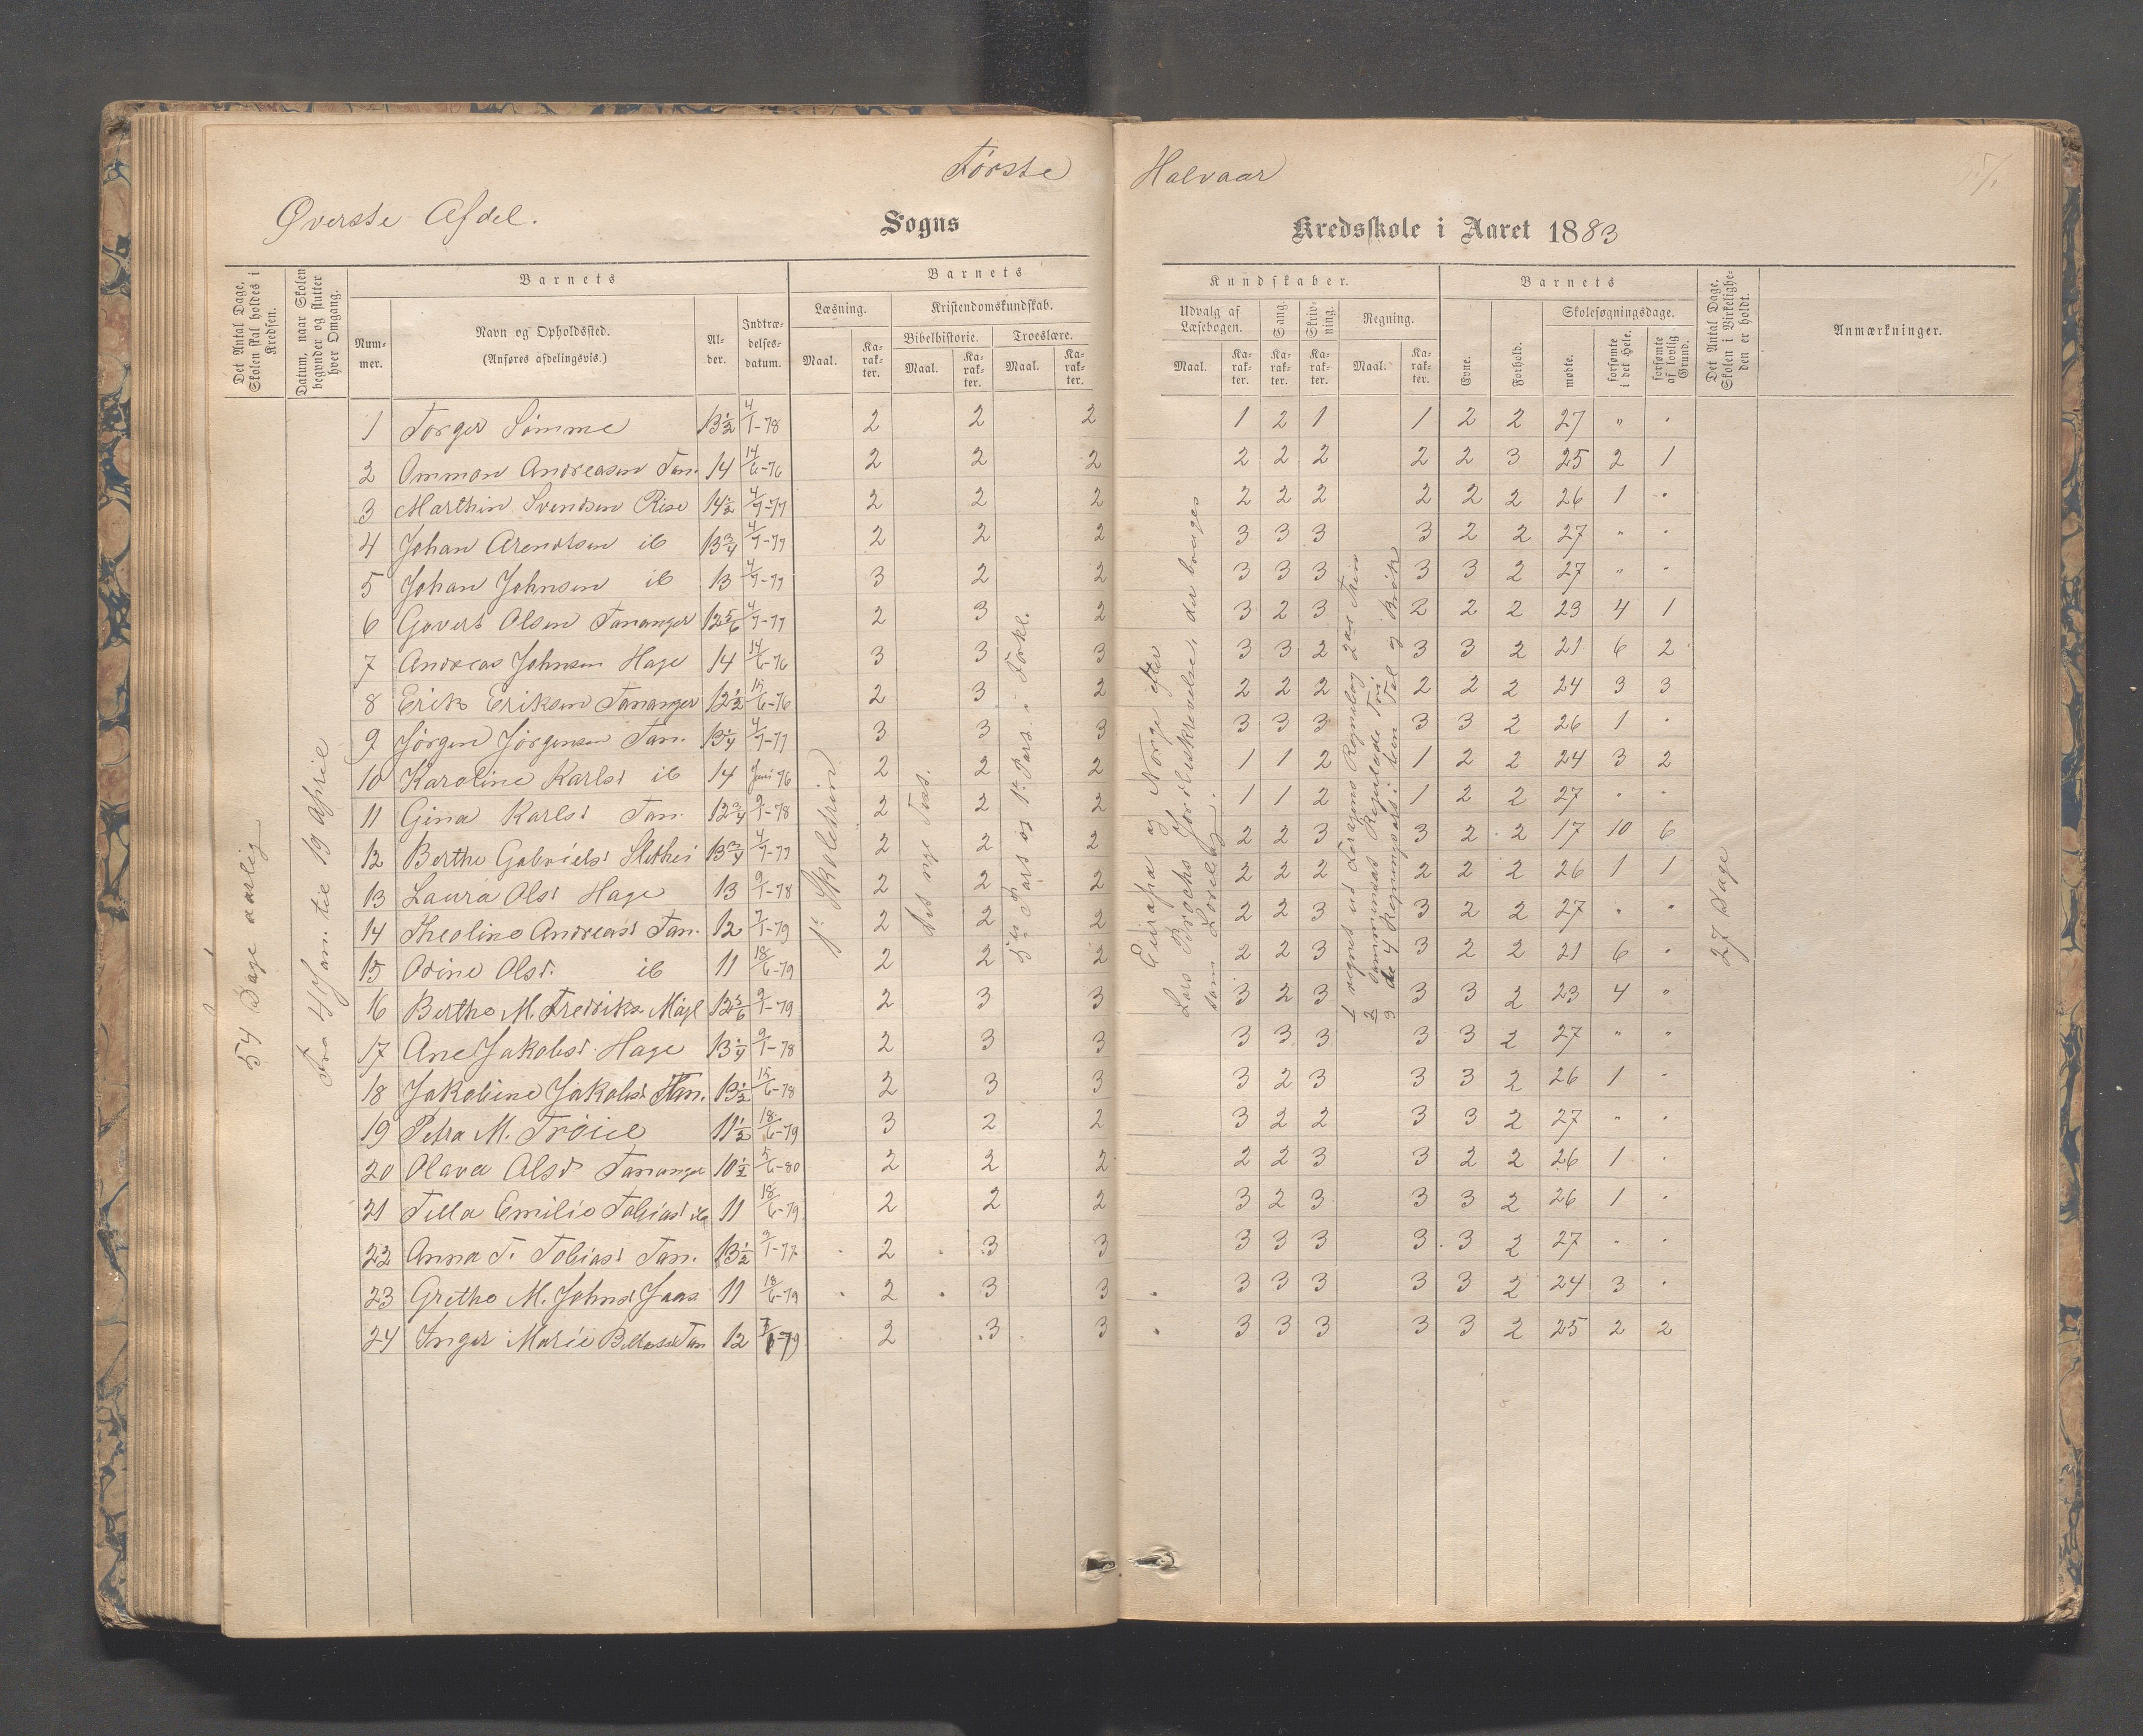 Første Halvaar
Øverste Afdel. Sogns Kredsskole i Aaret 1883
Det Antal Dage, Skolen skal holdes i Kredsen.
Datum, naar Skolen begynder og slutter hver Omgang.
Barnets
Nummer.
Navn og Opholdssted.
(Anføres afdelingsvis.)
Alder.
Indtrædelsesdatum.
Barnets Kundskaber.
Læsning. Kristendomskundskab.
Bibelhistorie. Troeslære.
Maal. Karakter. Maal. Karakter. Maal. Karakter.
Udvalg af Læsebogen. Sang. Skrivning. Regning.
Maal. Karakter. Karakter. Karakter. Maal. Karakter.
Barnets
Evne. Forhold. Skolesøgningsdage.
mødte. forsømte i det Hele. forsømte af lovlig Grund.
Det Antal Dage, Skolen i Virkeligheden er holdt.
Anmærkninger.
54 Dage aarlig
Fra 4 Jan. til 19 April
1 Torger Sømme 13½ 4/1-78 2 2 2 1 2 1 1 2 2 27 " "
2 Ommon Andreasen Tan. 14 14/6-76 2 2 2 2 2 2 2 2 3 25 2 1
3 Marthin Svendsen Risa 14½ 4/7-77 2 2 2 2 2 2 2 2 2 26 1 "
4 Johan Arendtsen ib 13¾ 4/7-77 2 2 2 3 3 3 3 2 2 27 " "
5 Johan Johnsen ib 13 4/7-77 3 2 2 3 3 3 3 3 2 27 " "
6 Govert Olsen Tananger 12 5/6 4/7-77 2 3 2 3 2 3 2 2 2 23 4 1
7 Andreas Johnsen Hage 14 14/6-76 3 3 3 3 3 2 3 3 2 21 6 2
8 Erik Eriksen Tananger 12½ 15/6-76 2 3 2 2 2 2 2 2 2 24 3 3
9 Jørgen Jørgensen Tan. 13¼ 4/7-77 3 3 3 3 3 3 3 3 2 26 1 "
10 Karoline Karlsd ib 14 Juni 76 2 2 2 1 1 2 1 2 2 24 3 2
11 Gina Karlsd Tan. 12¾ 9/1-78 2 2 2 1 1 2 1 2 2 27 " "
12 Berthe Gabrielsd 13¾ 4/7-77 2 2 2 2 2 3 3 2 2 17 10 6
13 Laura Olsd Hage 13 9/1-78 2 2 2 2 2 2 2 2 2 26 1 1
14 Theoline Andreasd Tan. 12 7/1-79 2 2 2 2 2 3 3 2 2 27 " "
15 Odine Olsd. ib 11 18/6-79 2 2 2 2 2 3 3 2 2 21 6 "
16 Berthe M. Fredriks 12 5/6 9/1-79 2 3 3 3 2 3 3 3 2 23 4 "
17 Ane Jakobsd. Hage 13¼ 9/1-78 2 3 3 3 3 3 3 3 2 27 " "
18 Jakobine Jakobsd Tan. 13½ 15/6-78 2 3 3 3 2 3 3 3 2 26 1 "
19 Petra M. Trøice 11½ 18/6-79 3 2 2 3 2 2 3 3 2 27 " "
20 Olava Olsd Tananger 10½ 5/6-80 2 2 2 2 2 3 3 2 2 26 1 "
21 Tilla Emilie Tobiasd 11 18/6-79 2 2 2 3 2 3 3 3 2 26 1 "
22 Anna T. Tobiasd Tan. 13½ 9/1-77 2 3 3 3 3 3 3 3 2 27 " "
23 Grethe M. Johnsd Jaas 11 18/6-79 2 3 3 3 3 3 3 3 2 24 3 "
24 Inger Marie Tan 12 7/1-79 2 3 3 3 3 3 3 3 2 25 2 2
1ste Skoletrin
Det nye Test.
3die Part og 1ste Part. i Forkl.
Europa og Norge efter
Lars Brochs Jordbeskrivelse, der bruges
som Læsebog.
1 regnet ud Regnebog 2det Trin
2 sammensat Reguladetri
3 de 4 Regningsart. i hele Tal og Brøk
27 Dage